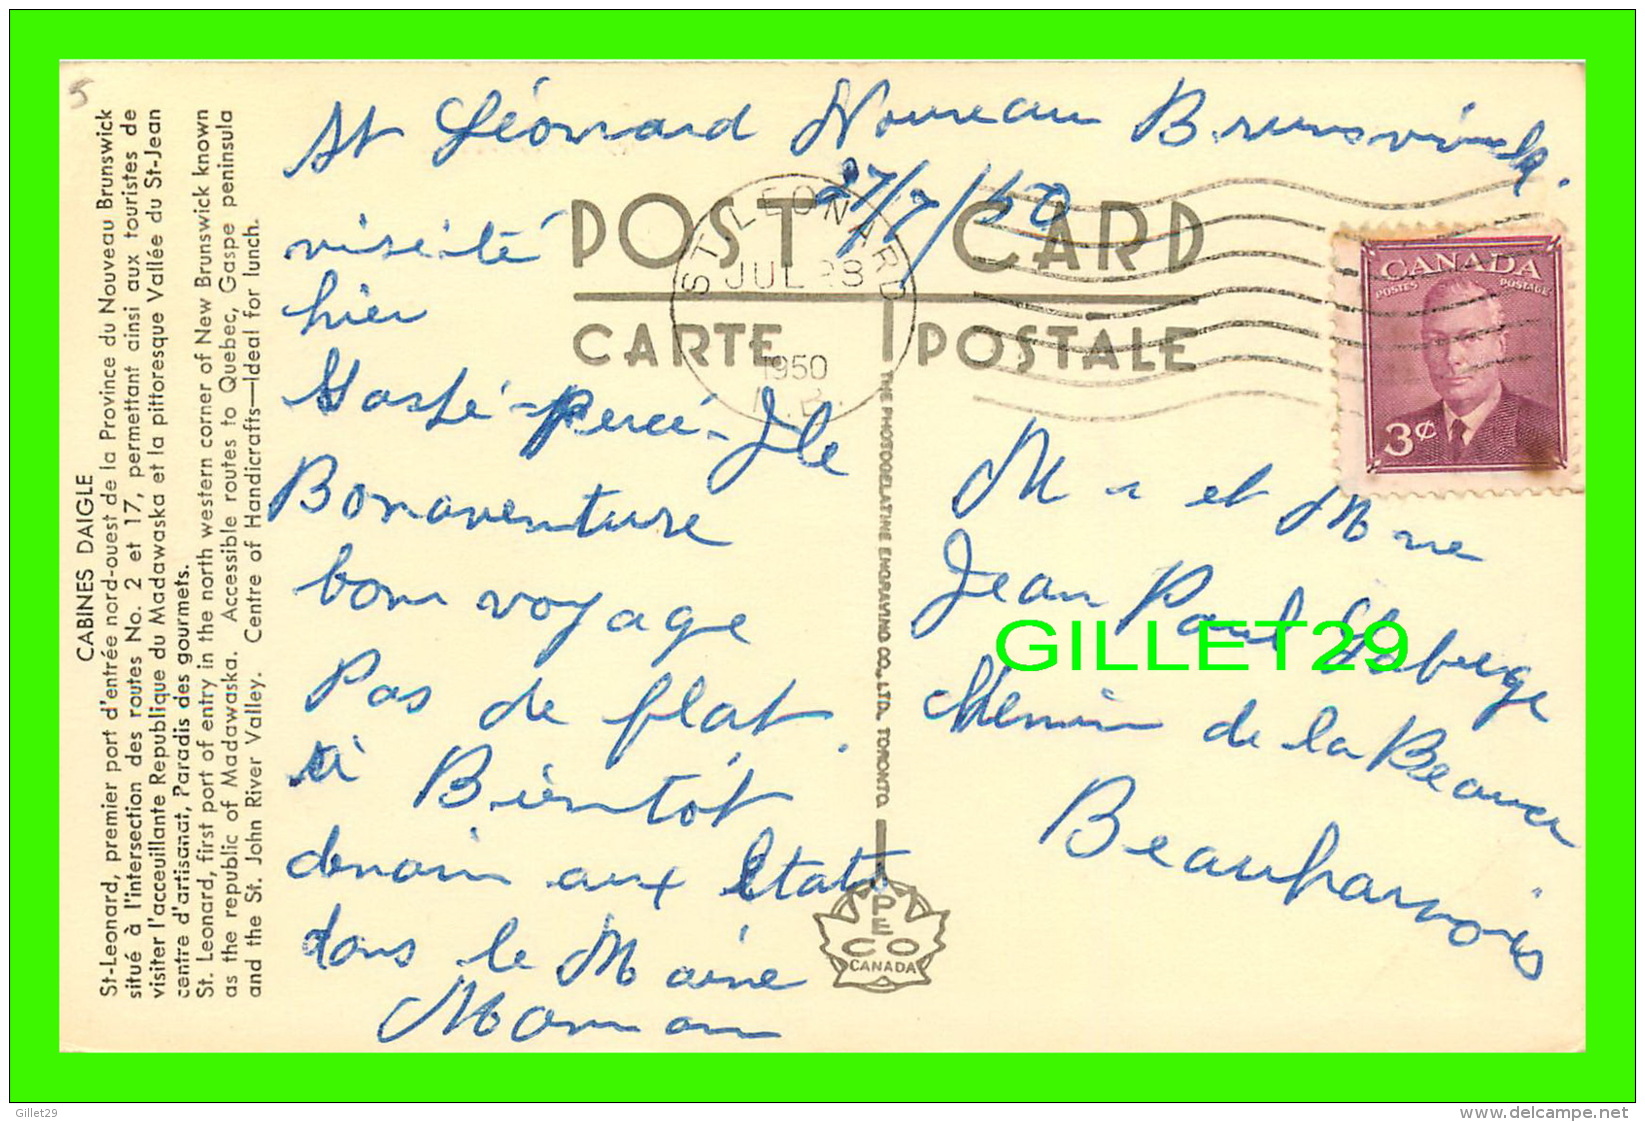 CABINES DAIGLE
St-Leonard, premier port d'entrée nord-ouest de la Province du Nouveau Brunswick
situé à l'intersection des routes No. 2 et 17, permettant ainsi aux touristes de
visiter l'acceuillante Republique du Madawaska et la pittoresque Vallée du St-Jean
centre d'artisanat, Paradis des gourmets.
St. Leonard, first port of entry in the north western corner of New Brunswick known
as the republic of Madawaska. Accessible routes to Quebec, Gaspe peninsula
and the St. John River Valley. Centre of Handicrafts—Ideal for lunch.
5
St Léonard Nouveau Brunsvick.
27/7/50
visité
hier
Gaspé-percé-Ile
Bonaventure
bon voyage
Pas de flat.
à Bientôt
demain aux Etats
dans le Maine
Maman
POST CARD
CARTE POSTALE
ST. LEONARD
JUL 28
1950
N.B.
CANADA
POSTES POSTAGE
3¢
M r et Mme
Jean Paul Laberge
Chemin de la Beauce
Beauharnois
THE PHOTOGELATINE ENGRAVING CO., LTD. TORONTO
PECO
CANADA
GILLET29
Gillet29
www.delcampe.net